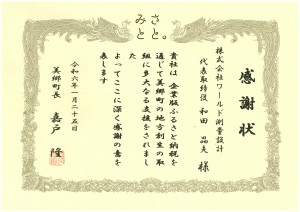 みさと
と。
感謝状
株式会社ワールド測量設計
代表取締役 和田 晶夫 様
貴社は 企業版ふるさと納税を
通じて美郷町の地方創生の取
組に多大なる支援をされまし
た
よってここに深く感謝の意を
表します
令和六年一月二十五日
美郷町長 嘉戸 隆